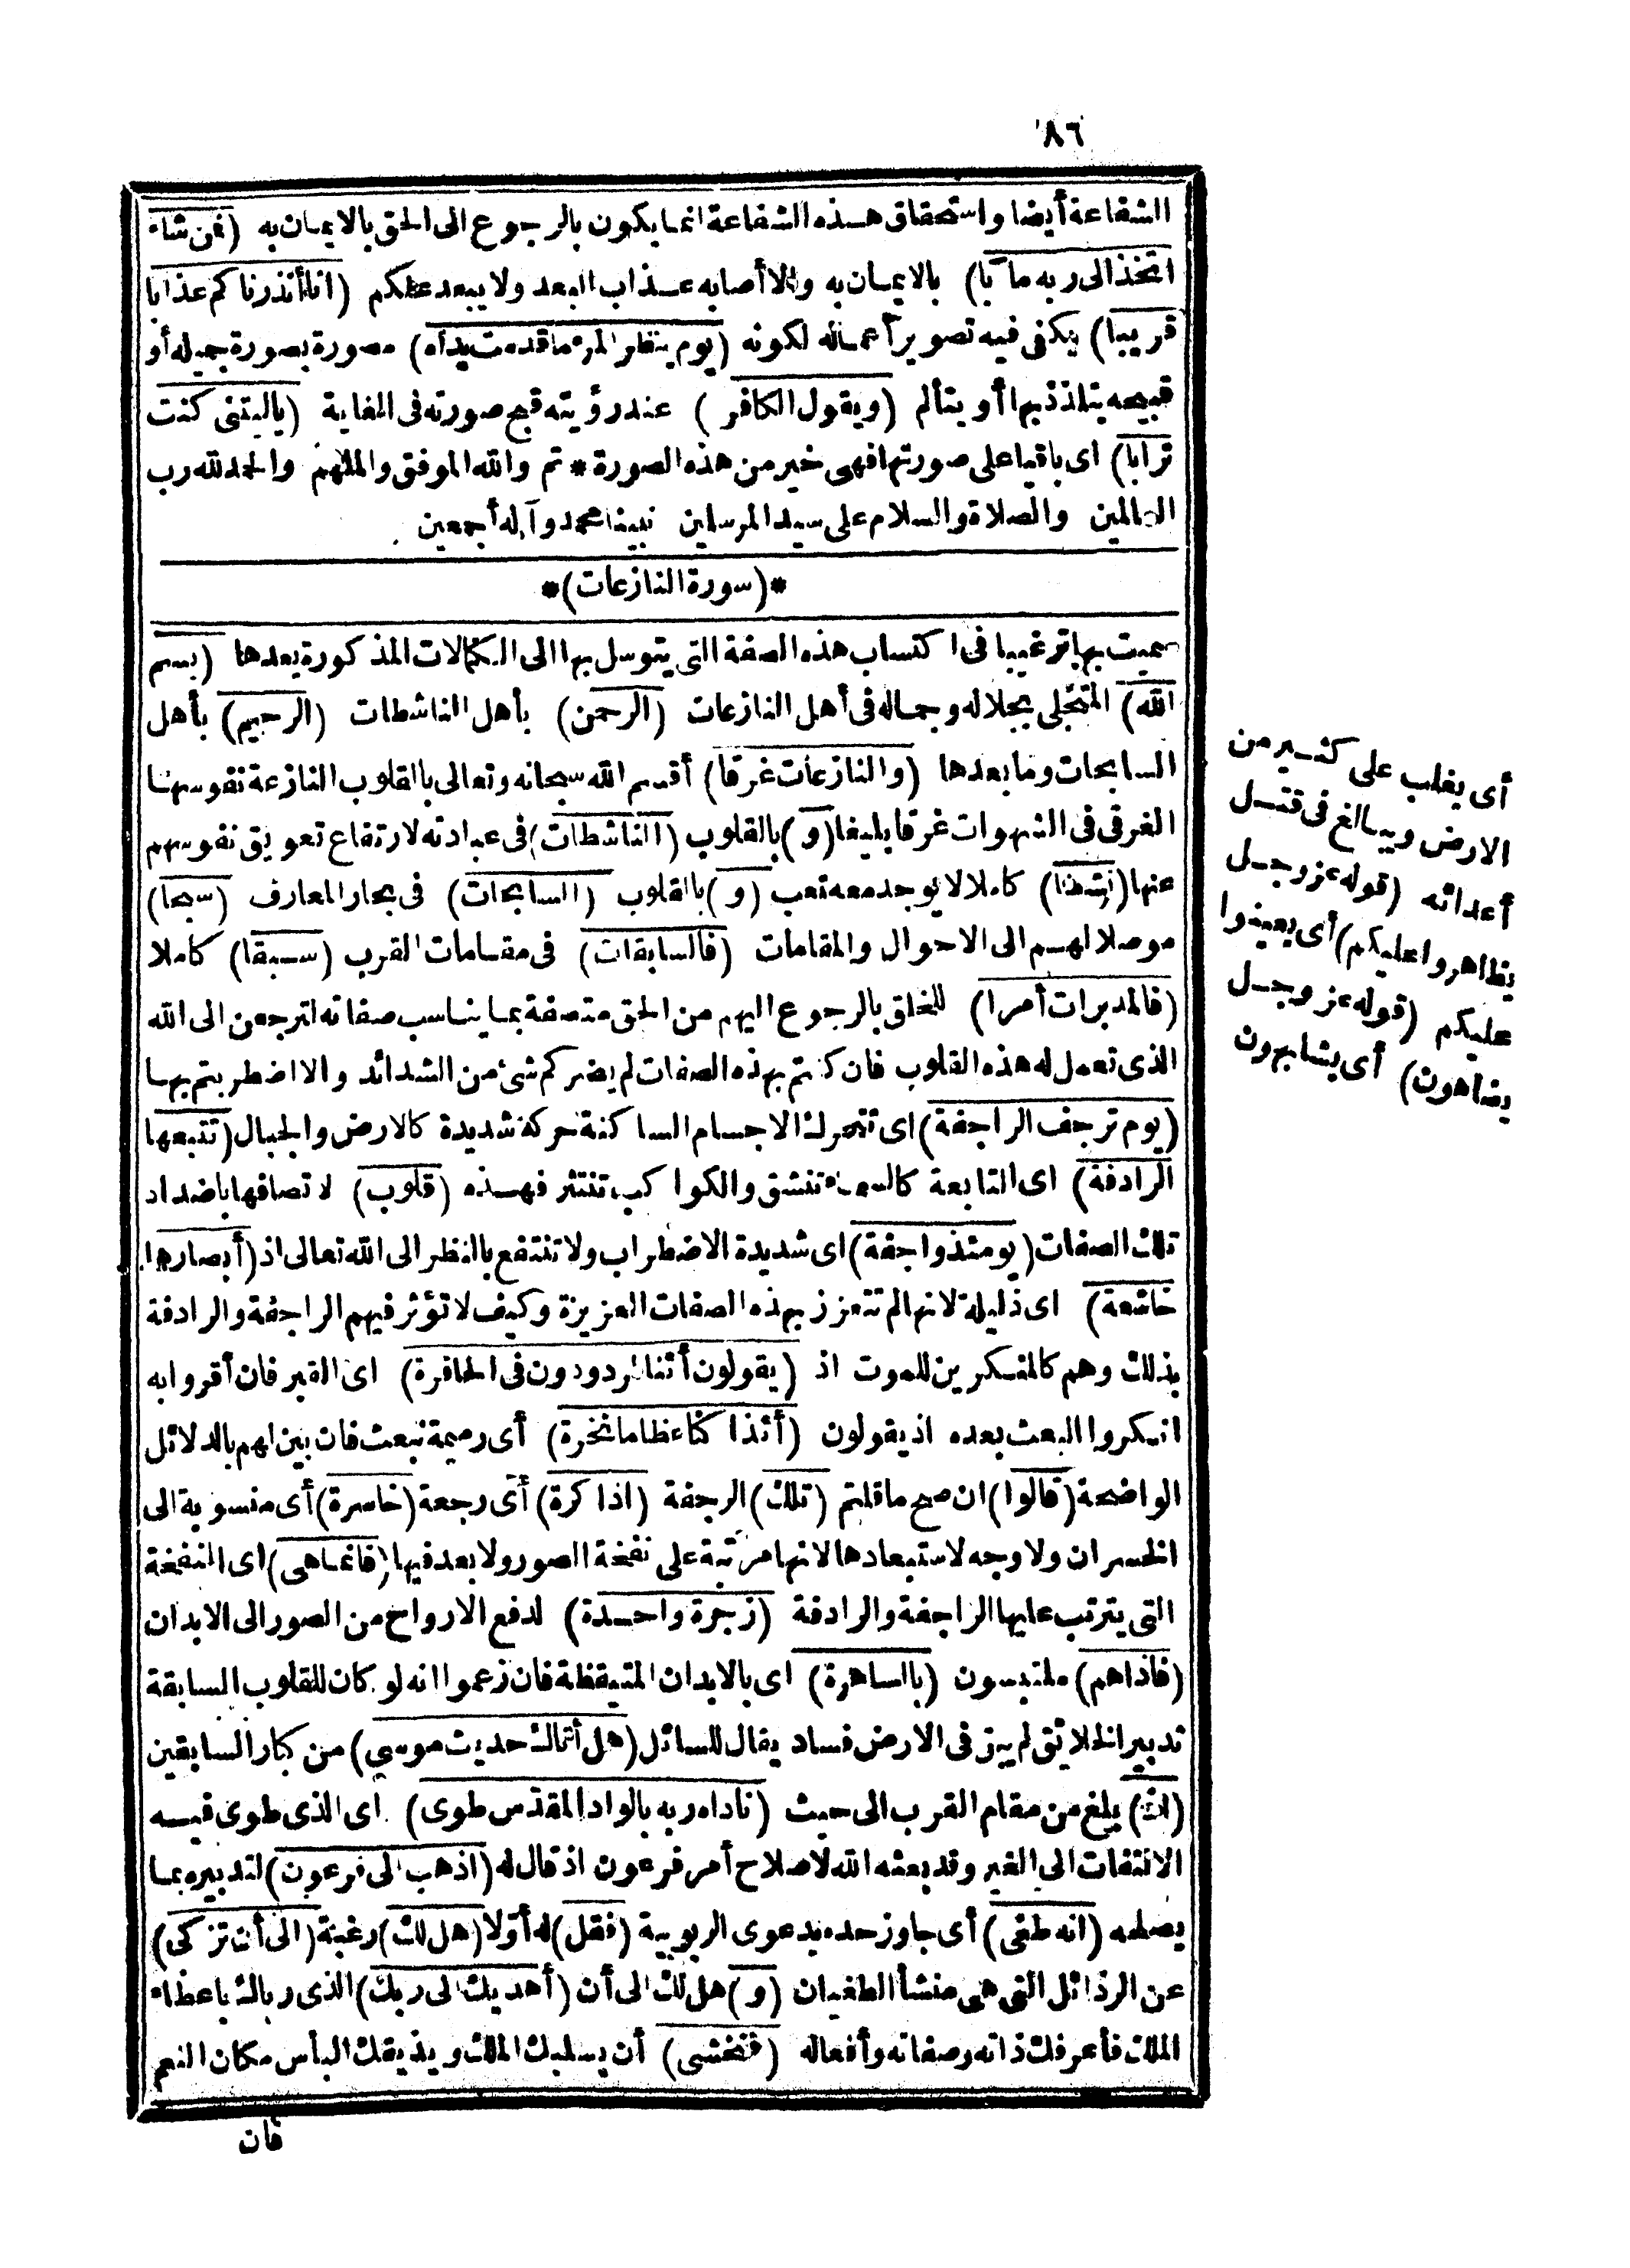 ٨٦
الشفاعة أيضا واستحقاق هذه الشفاعة انما يكون بالرجوع الى الحق بالايمان به (فمن شاء
اتخذ الى ربه مآبا) بالايمان به والا أصابه عذاب البعد ولا يبعد عنكم (انا أنذرناكم عذابا
قريبا) يكفى فيه تصوير أعماله لكونه (يوم ينظر المرء ما قدمت يداه) مصورة بصورة جميله أو
قبيحه يتلذذ بها أو يتألم (ويقول الكافر) عند رؤيته قبح صورته فى الغاية (ياليتنى كنت
ترابا) اى باقيا على صورتها فهى خير من هذه الصورة * تم والله الموفق والملهم والحمد لله رب
العالمين والصلاة والسلام على سيد المرسلين نبينا محمد وآله أجمعين
*(سورة النازعات)*
سميت بها ترغيبا فى اكتساب هذه الصفة التى يتوسل بها الى الكمالات المذكورة بعدها (بسم
الله) المتجلى بجلاله وجماله فى أهل النازعات (الرحمن) بأهل الناشطات (الرحيم) بأهل
السابحات وما بعدها (والنازعات غرقا) أقسم الله سبحانه وتعالى بالقلوب النازعة نفوسها
الغرقى فى الشهوات غرقا بليغا (و) بالقلوب (الناشطات) فى عبادته لارتفاع تعويق نفوسهم
عنها (نشطا) كاملا لا يوجد معه تعب (و) بالقلوب (السابحات) فى بحار المعارف (سبحا)
موصلا لهم الى الاحوال والمقامات (فالسابقات) فى مقامات القرب (سبقا) كاملا
(فالمدبرات أمرا) للخلق بالرجوع اليهم من الحق متصفة بما يناسب صفاته لترجعن الى الله
الذى تعمل له هذه القلوب فان كنتم بهذه الصفات لم يضركم شئ من الشدائد والا اضطربتم بها
(يوم ترجف الراجفة) اى تتحرك الاجسام الساكنة حركة شديدة كالارض والجبال (تتبعها
الرادفة) اى التابعة كالسماء تنشق والكواكب تنتثر فهذه (قلوب) لاتصافها باضداد
تلك الصفات (يومئذ واجفة) اى شديدة الاضطراب ولا تنتفع بالنظر الى الله تعالى اذ (أبصارها
خاشعة) اى ذليلة لانها لم تتعزز بهذه الصفات العزيزة وكيف لا تؤثر فيهم الراجفة والرادفة
بذلك وهم كالمنكرين للموت اذ (يقولون أئنا لمردودون فى الحافرة) اى القبر فان أقروا به
انكروا البعث بعده اذ يقولون (أئذا كنا عظاما نخرة) أى رميمة نبعث فان بين لهم بالدلائل
الواضحة (قالوا) ان صح ما قلتم (تلك) الرجفة (اذا كرة) أى رجعة (خاسرة) أى منسوبة الى
الخسران ولا وجه لاستبعادها لانها مرتبة على نفخة الصور ولا بعد فيها (فانما هى) اى النفخة
التى يترتب عليها الراجفة والرادفة (زجرة واحدة) لدفع الارواح من الصور الى الابدان
(فاذا هم) ملتبسون (بالساهرة) اى بالابدان المتيقظة فان زعموا انه لو كان للقلوب السابقة
تدبير الخلائق لم يبق فى الارض فساد يقال للسائل (هل أتاك حديث موسى) من كبار السابقين
(اذ) بلغ من مقام القرب الى حيث (ناداه ربه بالواد المقدس طوى) اى الذى طوى فيه
الالتفات الى الغير وقد بعثه الله لاصلاح أمر فرعون اذ قال له (اذهب الى فرعون) لتدبيره بما
يصلحه (انه طغى) أى جاوز حده بدعوى الربوبية (فقل) له أولا (هل لك) رغبة (الى أن تزكى)
عن الرذائل التى هى منشأ الطغيان (و) هل لك الى أن (أهديك الى ربك) الذى رباك باعطاء
الملك فأعرفك ذاته وصفاته وأفعاله (فتخشى) أن يسلبك الملك ويذيقك البأس مكان النعم
فان
أى يغلب على كثير من
الارض ويبالغ فى قتل
أعدائه (قوله عز وجل
يظاهروا عليكم) أى يعينوا
عليكم (قوله عز وجل
يضاهون) أى يشابهون